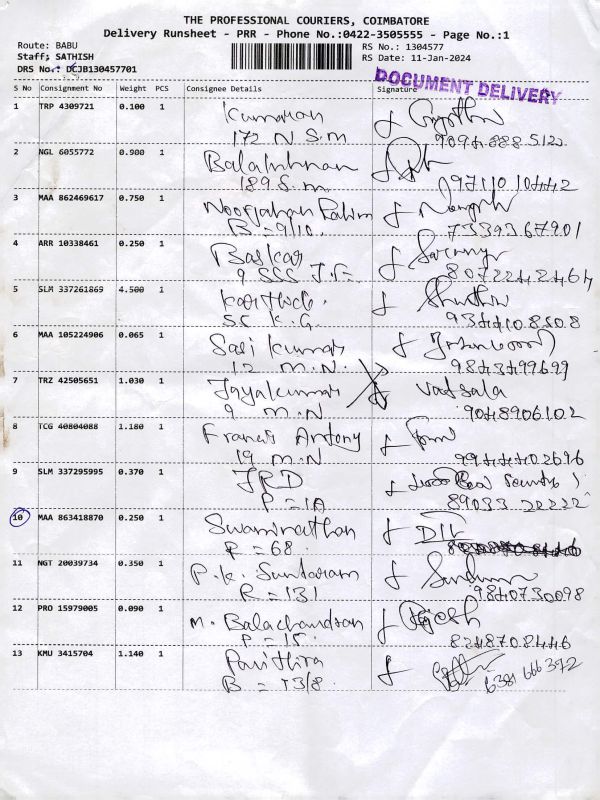 THE PROFESSIONAL COURIERS, COIMBATORE
Delivery Runsheet - PRR - Phone No.:0422-3505555 - Page No.:1
Route: BABU
RS No.: 1304577
Staff: SATHISH
RS Date: 11-Jan-2024
DRS No.: DCJB130457701
DOCUMENT DELIVERY
S No Consignment No Weight PCS Consignee Details Signature
1 TRP 4309721 0.100 1 Kumaran
172 N S.m 9094888512
2 NGL 6055772 0.900 1 Balakrishnan
189 S.m.
3 MAA 862469617 0.750 1 Noorjahan Rahim
B = 9/10. 7339367901
4 ARR 10338461 0.250 1 Baskar
9 SSS J.F. 8072242464
5 SLM 337261869 4.500 1 Karthick.
SC K.G. 9344108508
6 MAA 105224906 0.065 1 Sasi Kumar
12 M.N. 9843499699
7 TRZ 42505651 1.030 1 Jayakumar Vatsala
9 m.N 9048906102
8 TCG 40804088 1.180 1 Francis Antony
19 m.N 9944402696
9 SLM 337295995 0.370 1 JRD
P = 1A 89033 22222
10 MAA 863418870 0.250 1 Swaminathan DIL
R = 68.
11 NGT 20039734 0.350 1 P.K. Suntaram
R = 131 9840730098
12 PRO 15979005 0.090 1 M. Balachandran Rajesh
P = 15. 8248708446
13 KMU 3415704 1.140 1 Pavithra
B = T3/8. 6381 666372